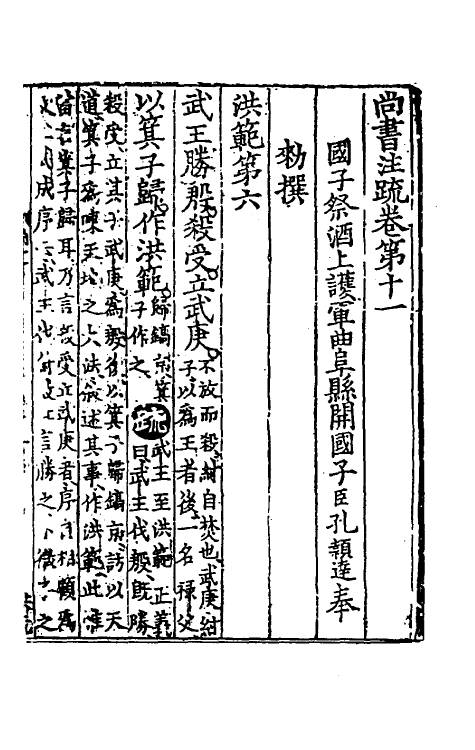 尚書注疏卷第十一
國子祭酒上護軍曲阜縣開國子臣孔穎達奉
勑撰
洪範第六
武王勝殷殺受立武庚
不放而殺紂自焚也武庚紂
子以爲王者後一名祿父
以箕子歸作洪範
歸鎬京箕
子作之
疏
武王至洪範正義
曰武王伐殷既勝
殺受立其子武庚爲殷後以箕子歸鎬京訪以天
道箕子爲陳天地之大法叙述其事作洪範此惟
當言箕子歸耳乃言殺受立武庚者序自相顧爲
成序云武王伐紂故此言勝之下微子之